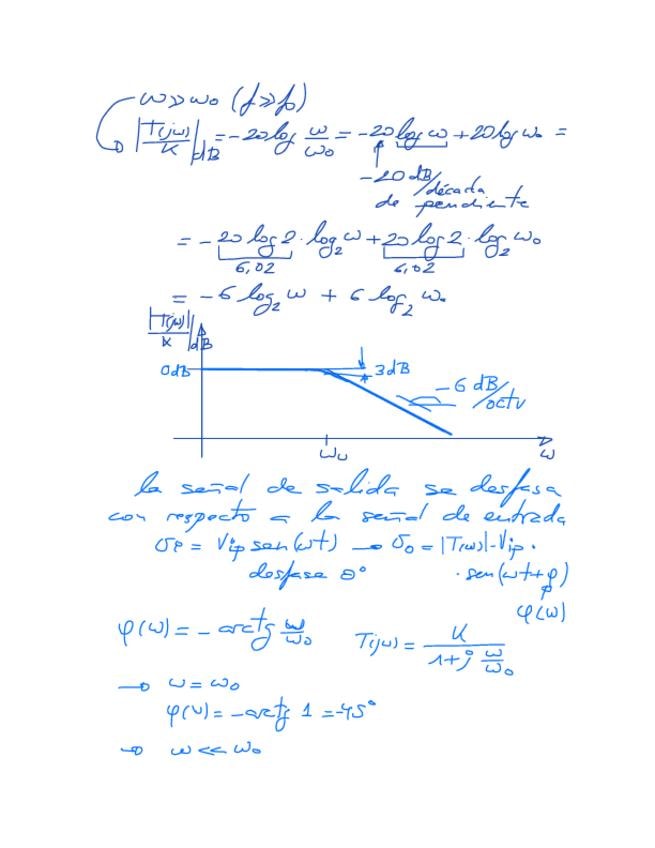 ω>>ω₀ (f>>f₀)
|T(jω)/K|dB = -20 log ω/ω₀ = -20 log ω + 20 log ω₀ =
-20 dB/década
de pendiente
= -20 log 2 · log₂ ω + 20 log 2 · log₂ ω₀
6,02 6,02
= -6 log₂ ω + 6 log₂ ω₀
|T(jω)/K|dB
0dB 3dB
-6 dB/octv
ω₀ ω
la señal de salida se desfasa
con respecto a la señal de entrada
υe = Vip sen(ωt) → υo = |T(ω)|·Vip·
desfase 0° ·sen(ωt+φ)
φ(ω)
φ(ω) = - arctg ω/ω₀ T(jω) = K/(1+j ω/ω₀)
→ ω = ω₀
φ(ω) = -arctg 1 = -45°
→ ω << ω₀